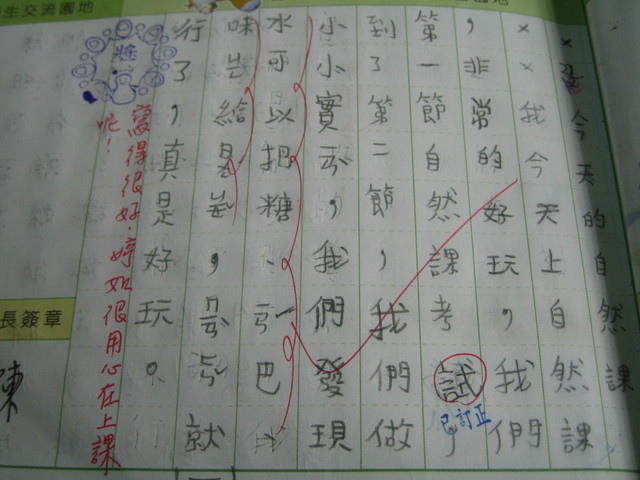 生交流園地
今天的自然課
××我今天上自然課
，非常的好玩，我們
第一節自然課考試，
已訂正
到了第二節，我們做
小小實，我們發現
水可以把糖、巴
味給是，就
行了，真是好玩。
寫得很好，婷如很用心在上課
呢！
長簽章
陳